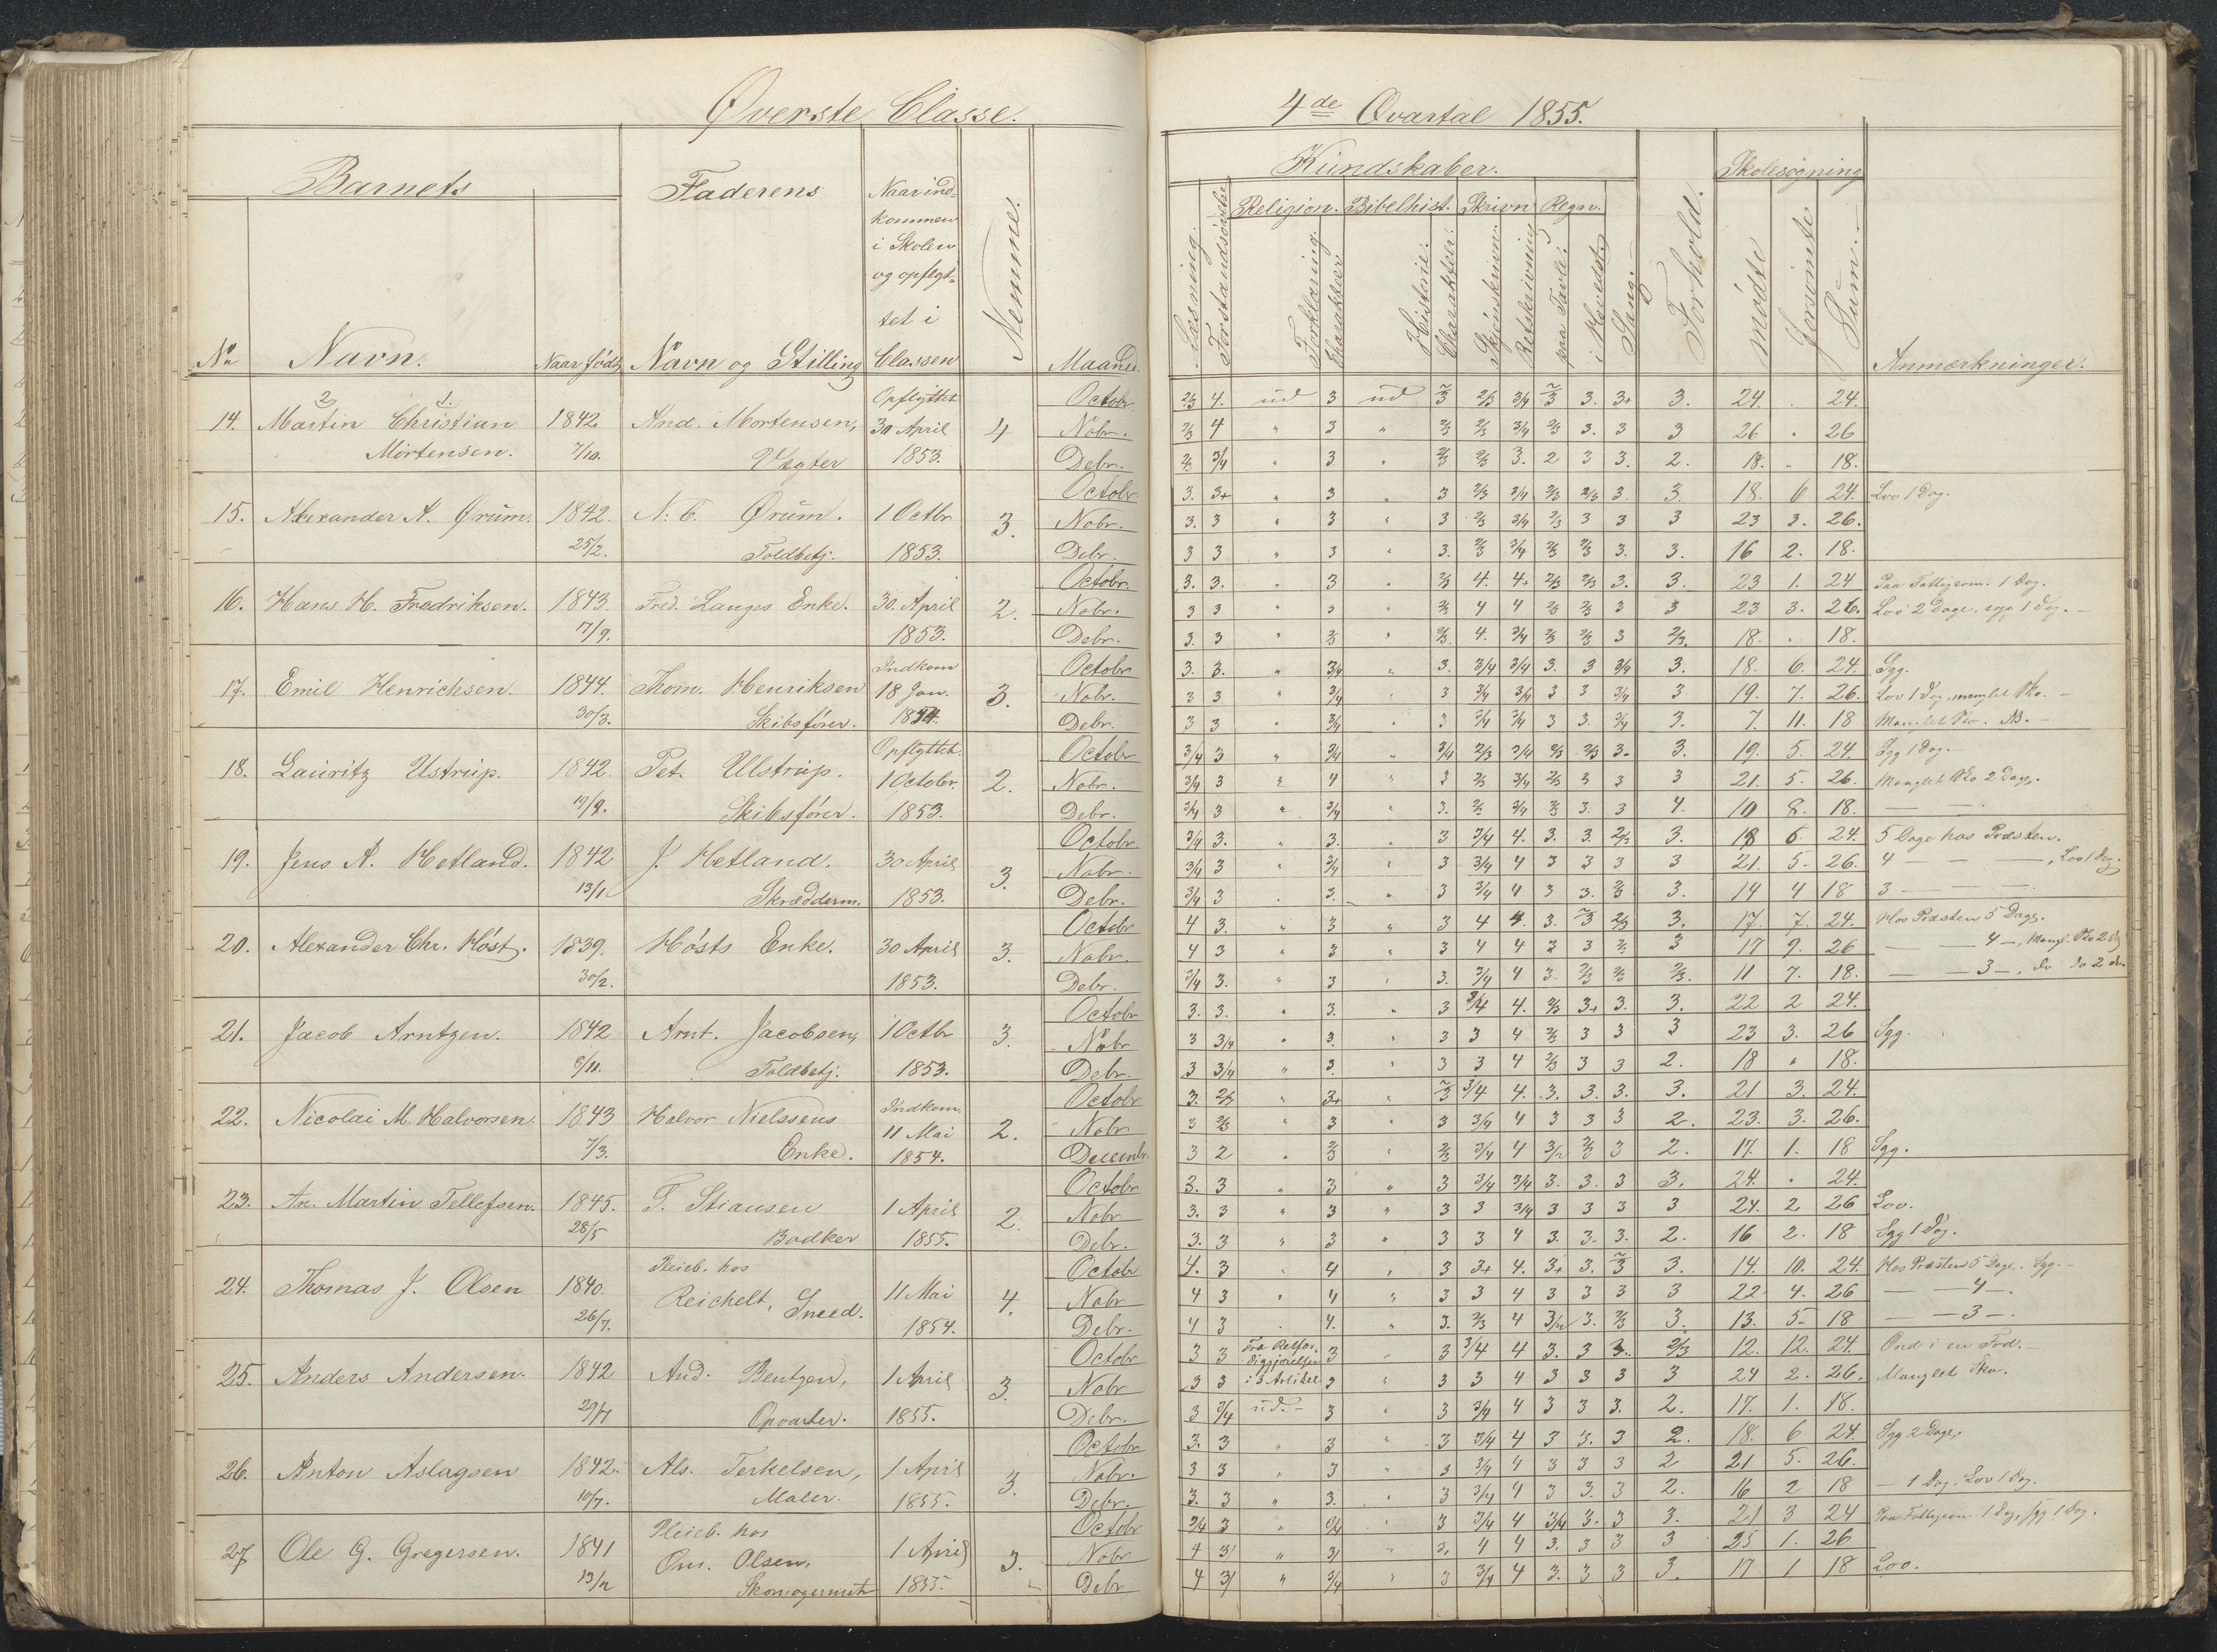 Øverste Classe.
4de Qvartal 1855.
Barnets
Faderens
Naar ind-
kommen
i Skolen
og opflyt-
tet i
Classen
Nemme.
Maaned.
No
Navn.
Naar født
Navn og Stilling
Kundskaber.
Læsning.
Forstandsøvelse
Religion.
Forklaring.
Charakter
Bibelhist.
Historie.
Charakter.
Skrivn
Skjønskrivn.
Retskrivning
Regn.
paa Tavle.
i Hovedet.
Sang.
Forhold.
Skolesøgning
mødte
forsømte
Sum.
Anmærkninger.
2 1. Opflyttet Octobr 2/3 4. ud 3 ud 3 2/3 3/4 3 3. 3+ 3. 24. . 24.
14. Martin Christian 1842. And. Mortensen, 30 April 4 Nobr. 2/3 4 " 3 " 2/3 2/3 3/4 2/3 3. 3 3 26 . 26
Mortensen. 7/10. Vegter 1853. Debr. 2/3 3/4 " 3 " 2/3 2/3 3. 2 3 3. 2. 18. " 18.
Octobr 3. 3+ " 3 " 3 2/3 3/4 2/3 2/3 3. 3. 18. 6 24. Lov 1 Dag.
15. Alexander A. Ørum. 1842. N. C. Ørum. 1 Octbr 3. Nobr. 3. 3 " 3 " 3 2/3 3/4 2/3 3 3 3 23 3. 26.
25/2. Toldbetj. 1853. Debr. 3 3 " 3 " 3. 2/3 3/4 2/3 2/3 3. 3. 16 2. 18.
Octobr. 3. 3. " 3 " 2/3 4. 4+ 2/3 2/3 3. 3. 23 1. 24 Paa Fattigcom. 1 Dag.
16. Hans H. Fredriksen. 1843. Fred. Langes Enke. 30. April 2. Nobr. 3 3 " 3 " 2/3 4 4 2/3 2/3 3 3 23 3. 26. Lov 2 Dage. syg 1 Dag.
17/9. 1853. Debr. 3. 3 " 2/3 " 2/3. 4. 3/4 2/3 2/3 3 2/3. 18. " 18.
Indkom Octobr 3. 3. " 3/4 " 3. 3/4 3/4 3. 3 3/4 3. 18. 6. 24. Syg.
17. Emil Henrichsen. 1844. Thom. Henriksen 18 Jan. 3. Nobr. 3 3 " 3/4 " 3 3/4 3/4 3 3 3/4 3 19. 7. 26. Lov 1 Dag, manglet Sko.
30/3. Skibsfører. 1854. Debr. 3 3 " 3/4 " 3 3/4 3/4 3 3. 3/4 3. 7. 11. 18 Manglet Sko.
Opflyttet. Octobr 3/4 3 " 3/4 " 3/4 2/3 3/4 2/3 2/3 3. 3. 19. 5. 24. Syg 1 Dag.
18. Lauritz Ustrup. 1842. Pet. Ulstrup. 1 October. 2. Nobr. 3/4 3 " 4 " 3 2/3 3/4 2/3 3 3 3 21. 5. 26. Manglet Sko 2 Dage.
19/9. Skibsfører. 1853. Debr. 3/4 3 " 3/4 " 3. 2/3 3/4 2/3 3. 3 4. 10 8. 18. — —
Octobr 3/4 3. " 3. " 3 3/4 4. 3. 3. 2/3 3. 18 6 24. 5 Dage hos Præsten.
19. Jens A. Hetland. 1842 J. Hetland. 30 April 3. Nobr. 3/4 3 " 3/4 " 3 3/4 4 3 3 3 3 21. 5. 26. 4 — — —, Lov 1 Dag.
13/1 Skrædderm. 1853. Debr. 3/4 3 " 3. " 3 3/4 4 3 3. 2/3 3. 14 4 18 3 — — —
Octobr 4 3. " 3 " 3 4 4. 3. 3 2/3 3. 17. 7. 24. Hos Præsten 5 Dage.
20. Alexander Chr. Høst. 1839. Høsts Enke. 30 April 3. Nobr. 4 3 " 3 " 3 4 4 3 3 2/3 3 17 9. 26 — — 4 —, Mangl. Sko 2 Dg
30/2. 1853. Debr. 3/4 3. " 3 " 3. 3/4 4 3. 2/3 2/3 2/3. 11 7. 18. — — 3 —, do do 2 do.
Octobr 3. 3. " 3. " 3 3/4 4. 2/3 3+ 3. 3. 22 2 24.
21. Jacob Arntzen. 1842 Arnt. Jacobsen, 1 Octbr 3. Nobr 3 3/4 " 3. " 3 3 4 2/3 3 3 3 23 3. 26 Syg.
8/11. Toldbetj. 1853. Debr. 3 3/4 " 3. " 3 3 4 2/3 3 3 2. 18 " 18.
Octobr 3. 2/3 " 3+ " 3 3/4 4. 3. 3. 3. 3. 21 3. 24.
22. Nicolai M. Halvorsen. 1843 Halvor Nielssens Indkom. 11 Mai 2. Nobr 3 2/3 " 3 " 3 3/4 4 3 3 3 2. 23. 3. 26.
7/3. Enke. 1854. Decembr. 3 2 " 2/3 " 2/3 3/4 4 3/2 2/3 3 2. 17. 1. 18 Syg.
Octobr 3. 3 " 3 " 3 3/4 3/4 3. 3. 3 3. 24. " 24
23. An. Martin Tellefsen. 1845. T. Stiansen 1 April 2. Nobr 3. 3 " 3 " 3 3 3/4 3 3 3 3 24. 2 26 Lov.
28/5 Bødker 1855. Debr. 3. 3 " 3 " 3 3 4 3. 3. 3. 2. 16 2. 18 Syg 1 Dag.
Pleieb. hos Octobr 4. 3 " 4 " 3 3+ 4. 3+ 3. 3 3. 14. 10. 24. Hos Præsten 5 Dage. Syg.
24. Thomas J. Olsen 1840. Reichelt, Smed. 11 Mai 4. Nobr 4 3 " 4 " 3 3 4 3 3 3 3 22 4. 26 — — 4 —.
26/7. 1854. Debr. 4 3 " 4. " 3. 2/3 4 3/2 3. 2/3 3. 13. 5. 18 — — 3 —.
Octobr 3 3 Fra Retfær- digjørelsen 3 " 3 3/4 4 3. 3 3. 2/3 12. 12. 24. Ond i en Fod.
25. Anders Andersen. 1842 And. Bentzen, 1 April 3. Nobr 3 3 i 3 Artikel 3 " 3 3 4 3 3 3 3 24 2. 26. Manglet Sko.
29/7 Opvarter. 1855. Debr. 3 3/4 ud. 3 " 3 3/4 4 3 3 3. 2. 17. 1. 18.
Octobr 3. 3 " 3 " 3 3/4 4 3 3. 3 2. 18. 6 24 Syg 2 Dage.
26. Anton Aslagsen 1842. Als. Terkelsen, 1 April 3. Nobr. 3 3 " 3 " 3 3/4 4 3 3 3 2 21 5. 26.
10/7. Maler. 1855. Debr. 3. 3 " 3. " 3 3/4 4 3 3. 3 2. 16 2 18 — 1 Dag. Lov 1 Dag.
Pleieb. hos Octobr 3/4 3 " 3/4 " 3 3/4 4 3/4 3. 3 3. 21 3 24 Paa Fattigcom. 1 Dag, syg 1 Dag.
27 Ole G. Gregersen. 1841 Olsen, 1 April 3. Nobr 4 3 " 3 " 3. 4 4 3. 3 3 3 25 1. 26
13/12 Skomagermstr 1855. Debr 4 3 " 3/4 " 3 3/4 4 3. 3 3 3. 17 1 18 Lov.